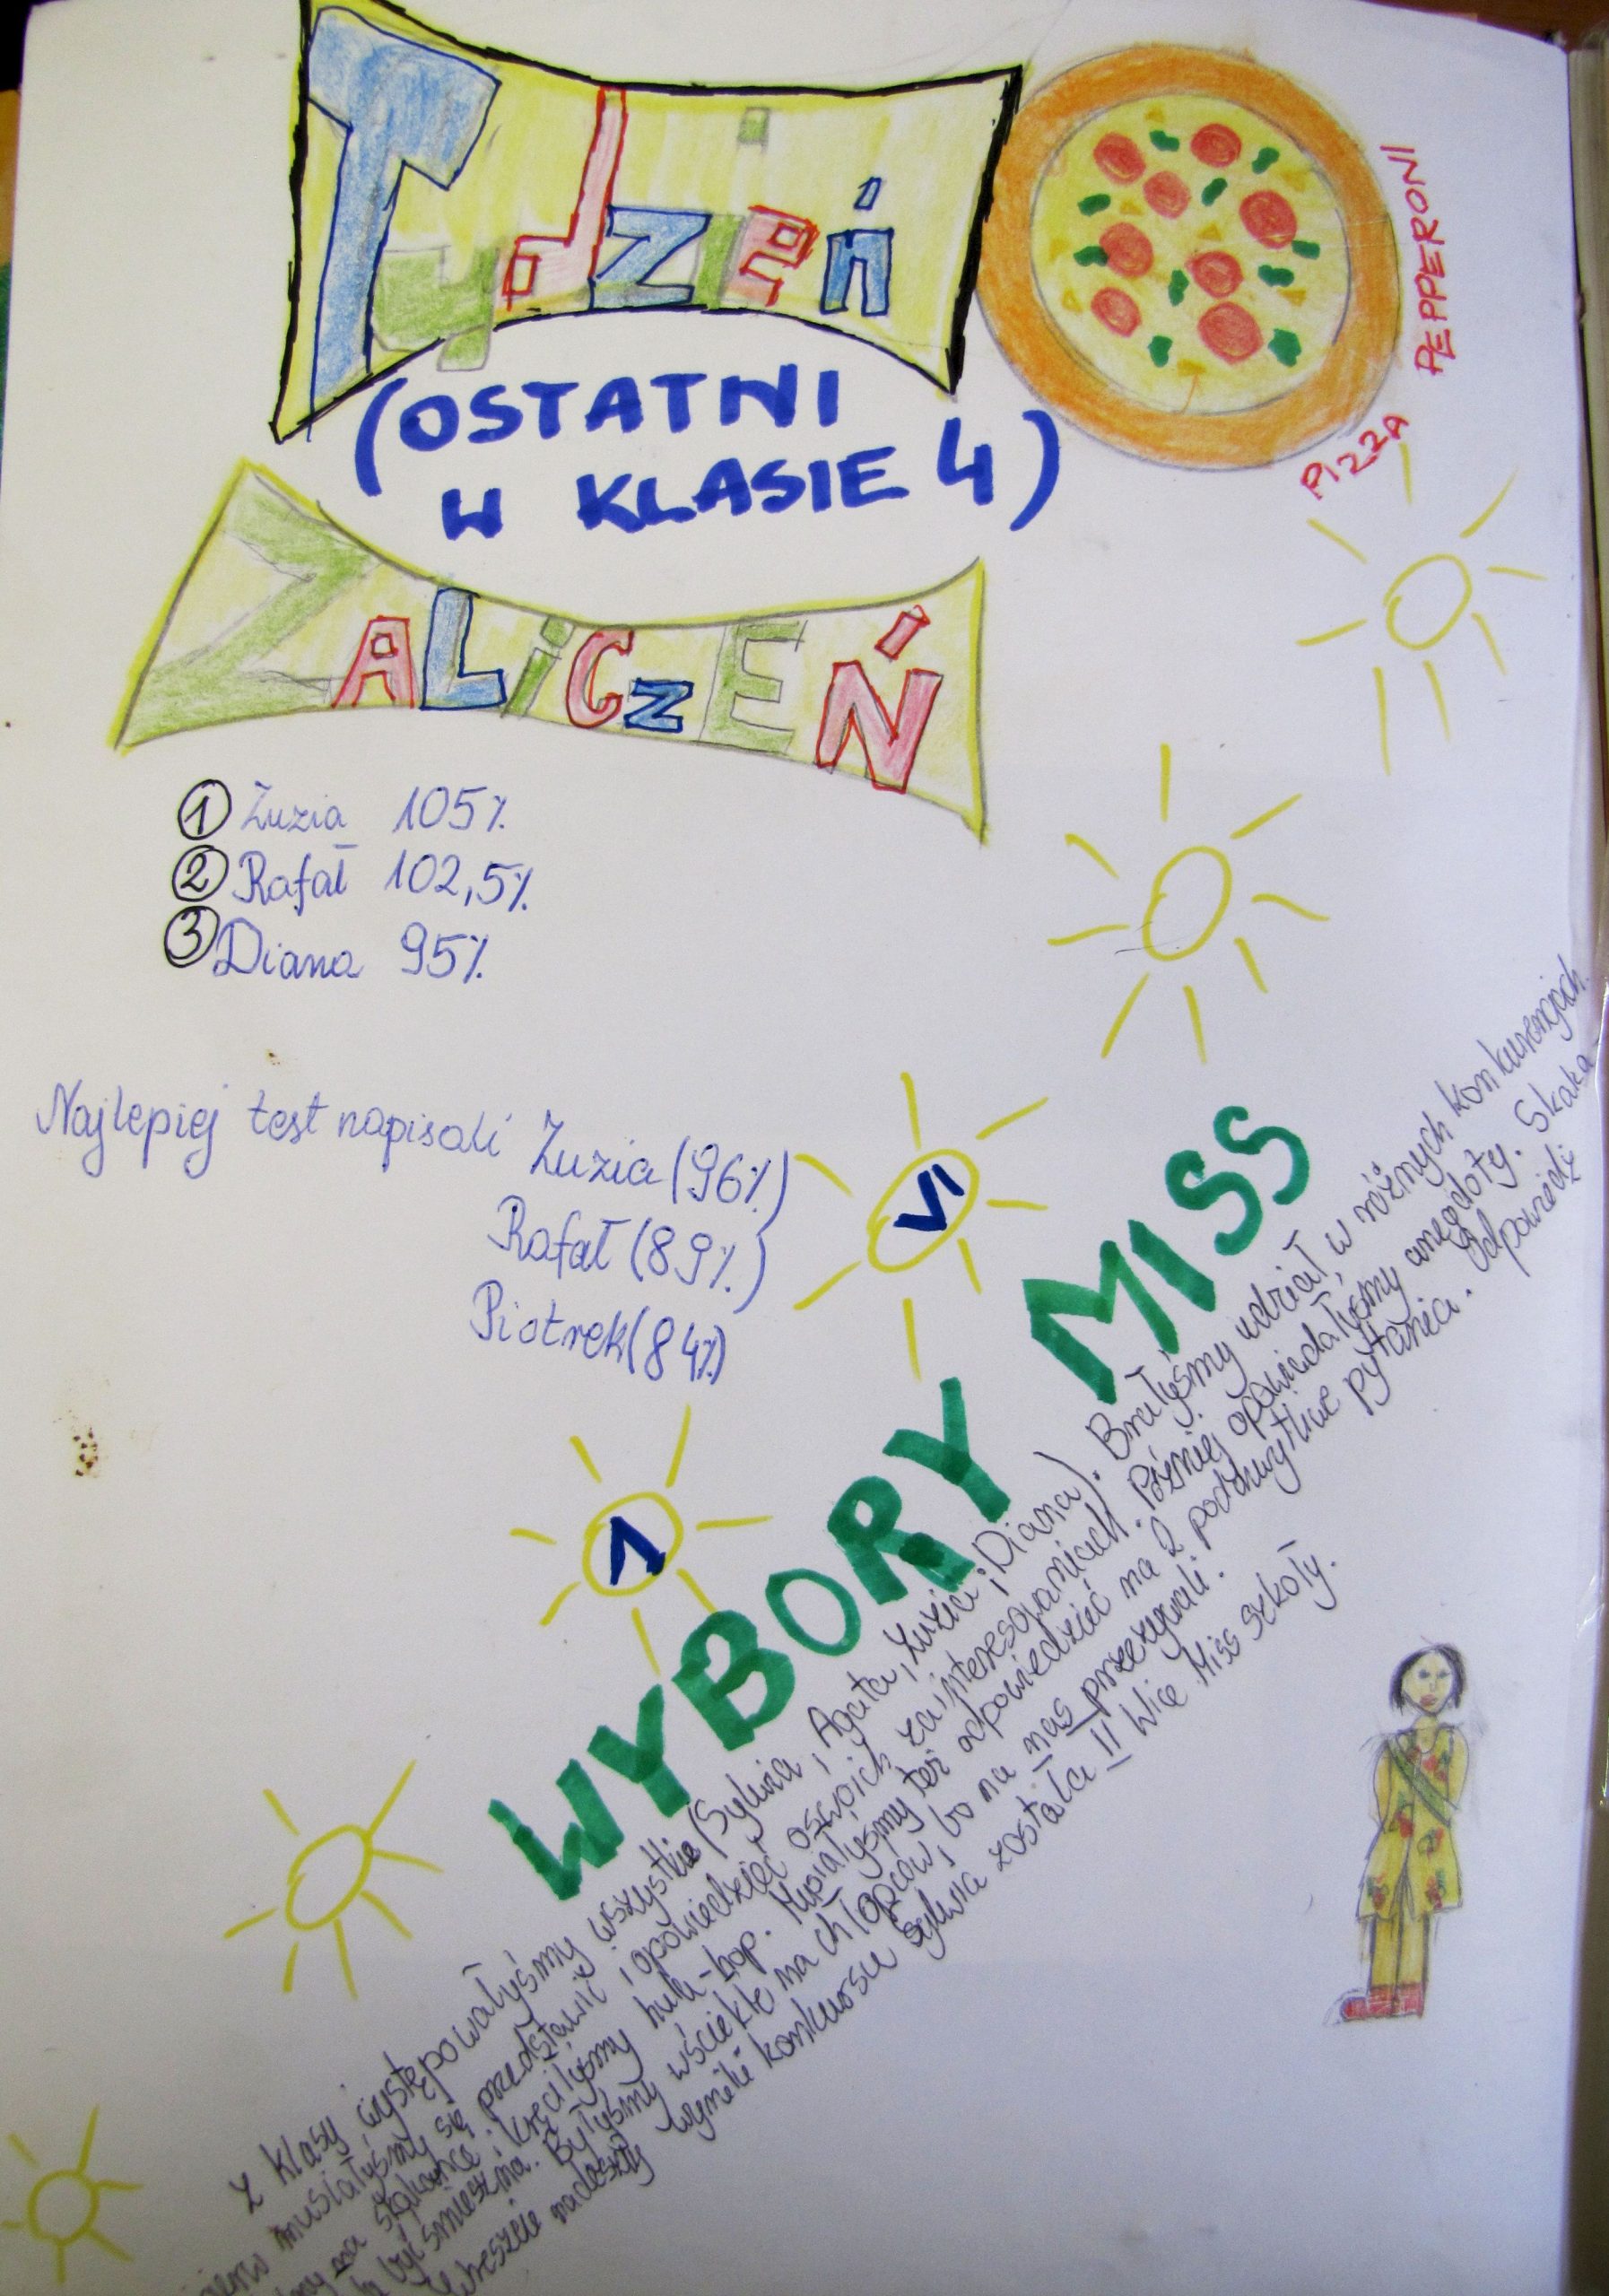 Tydzień
PIZZA PEPPERONI
(OSTATNI
W KLASIE 4)
ZALiCzEŃ
1 Zuzia 105%
2 Rafał 102,5%
3 Diana 95%
Najlepiej test napisali Zuzia (96%)
Rafał (89%)
Piotrek (84%)
VI
1
WYBORY MISS
Z klasy występowałyśmy wszystkie (Sylwia, Agata, Zuzia i Diana). Brałyśmy udział w różnych konkurencjach.
musiałyśmy się przedstawić i opowiedzieć o swoich zainteresowaniach. Później opowiadałyśmy anegdoty. Skaka-
na skakance i kręciłyśmy hula-hop. Musiałyśmy też odpowiedzieć na 2 podchwytliwe pytania. Odpowiedź
być śmieszna. Byłyśmy wściekłe na chłopców, bo na nas przezywali.
Wreszcie nadeszły wyniki konkursu Sylwia została II Wice Miss szkoły.